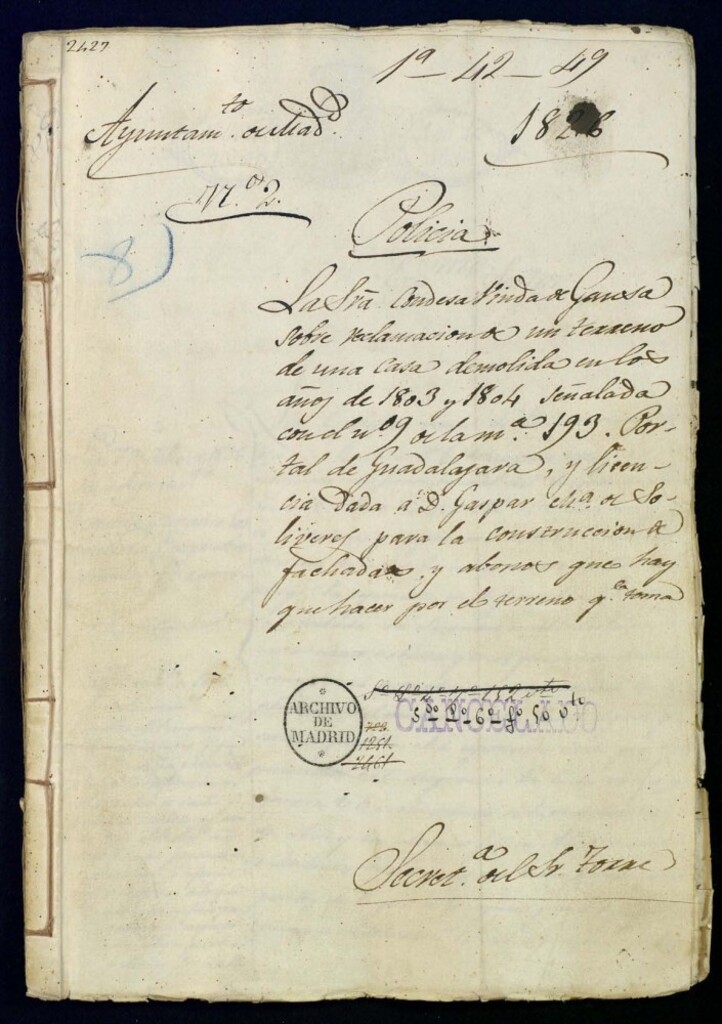 2427
1ª - 42 - 49
Ayuntam.to de Mad.d
1826
N.º 2.
Policia
8)
La Srã. Condesa Viuda de Gausa
sobre reclamacion de un terreno
de una casa demolida en los
años de 1803 y 1804 señalada
con el nº 9 de la m.ª 193. Por-
tal de Guadalajara, y licen-
cia dada a D. Gaspar de
liveres para la construccion de
fachadas y abonos que hay
que hacer por el terreno q.e toma
ARCHIVO
DE
MADRID
CANCELADO
1251.
2461
Secret.ª del Sr. Torre